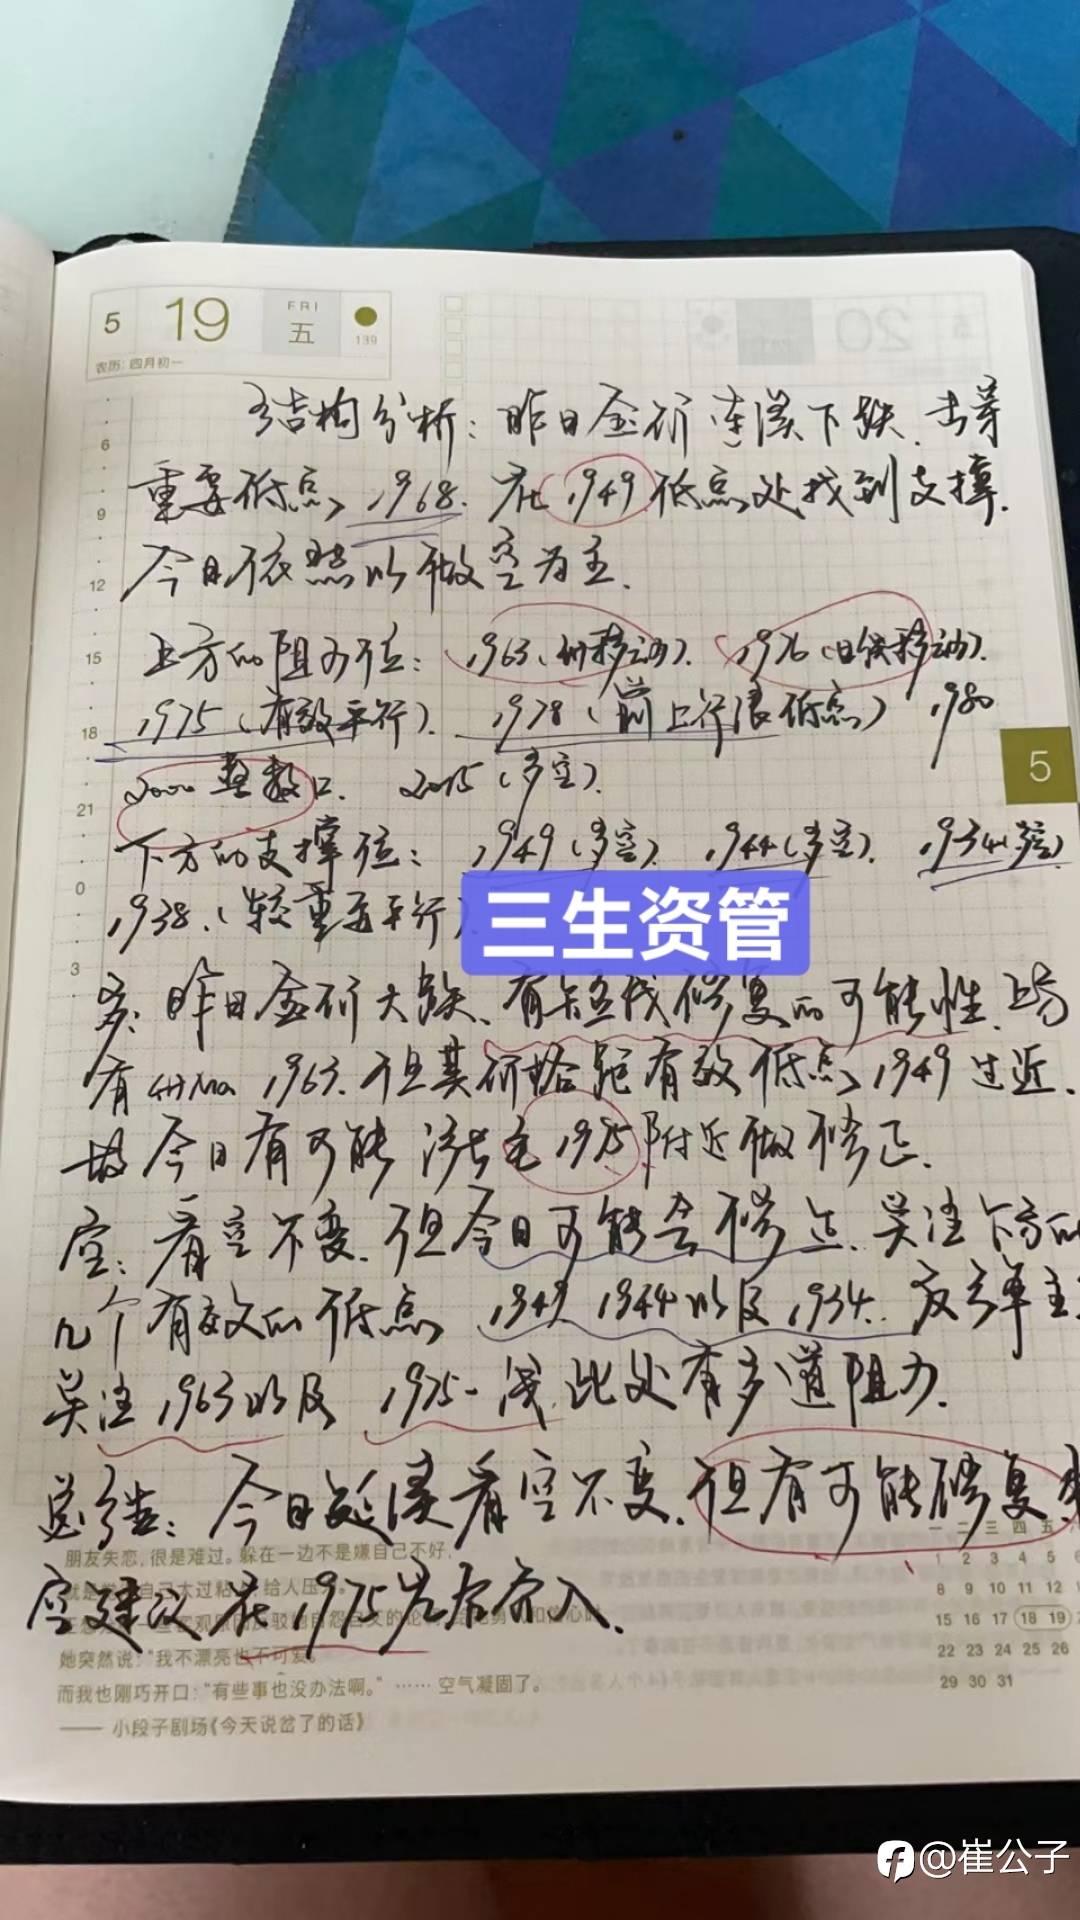 5 19 FRI 五 139
农历：四月初一
结构分析：昨日金价连续下跌，击穿
重要低点1968. 在1949低点处找到支撑.
今日依然以做空为主.
上方的阻力位：1963(4H移动). 1976(日线移动).
1975(有效平行). 1978(前上行浪低点) 1980
2000整数口. 2015(多空).
下方的支撑位：1949(多空). 1944(多空). 1934(多空)
1938.(较重要平行)
三生资管
多：昨日金价大跌、有短线修复的可能性、上方
有4HMa 1963. 但其价格距有效低点1949过近.
故今日有可能涨至1975附近做修正.
空：看空不变. 但今日可能会修正. 关注下方的
几个有效的低点 1949 1944以及1934. 反弹主
关注1963以及1975一线，此处有多道阻力.
总结：今日延续看空不变. 但有可能修复
空建议在1975左右介入.
6
9
12
15
18
21
0
3
5
朋友失恋，很是难过。躲在一边不是嫌自己不好，
她突然说：“我不漂亮也不可爱。”
而我也刚巧开口：“有些事也没办法啊。”……空气凝固了。
—— 小段子剧场《今天说岔了的话》
一 二 三 四 五
1 2 3 4 5
8 9 10 11 12
15 16 17 18 19
22 23 24 25 26
29 30 31
@崔公子